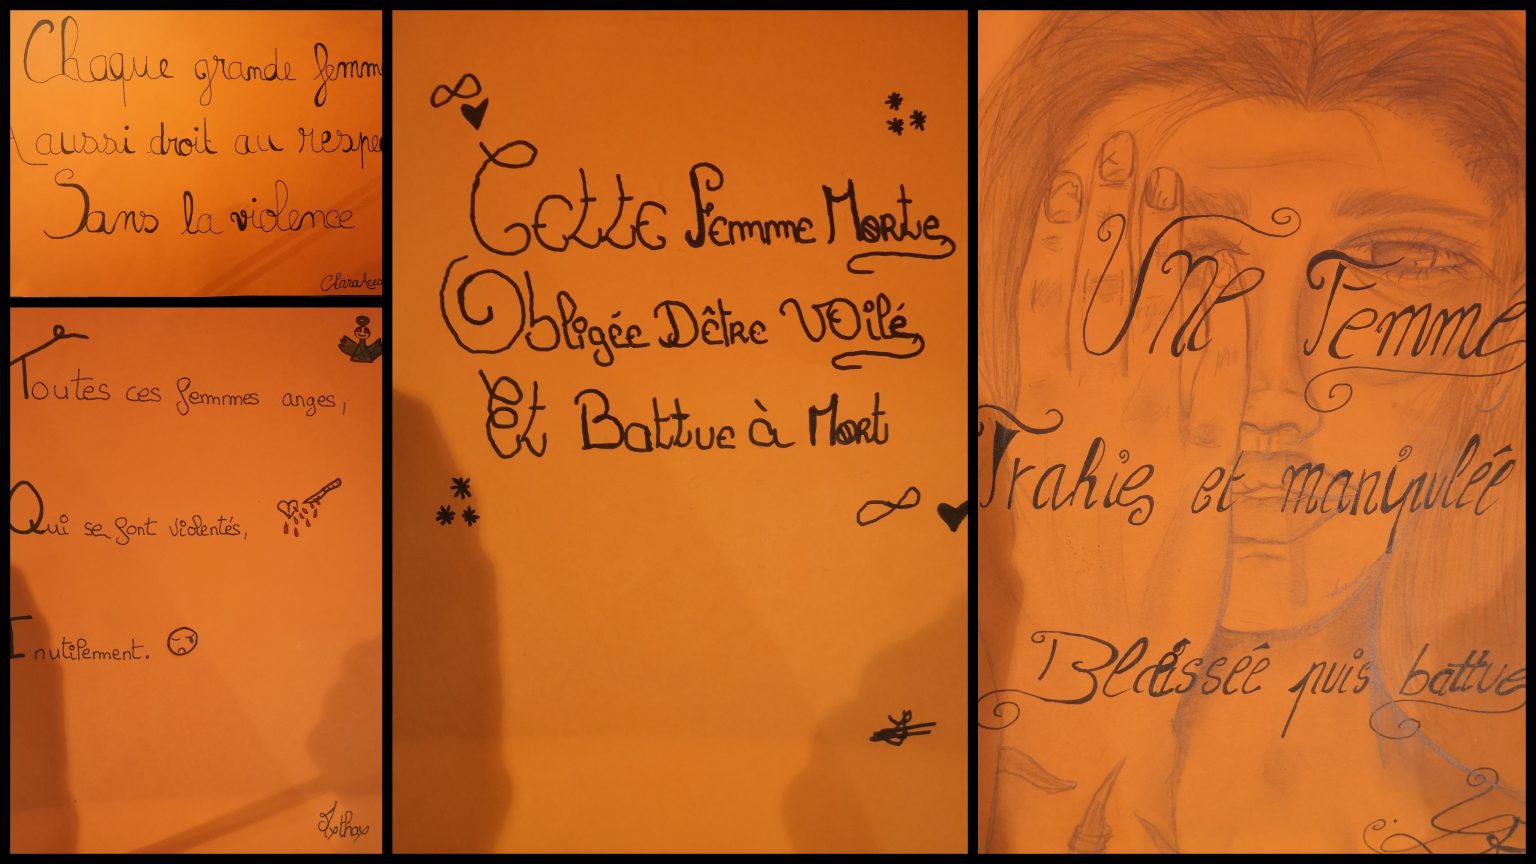 Chaque grande femm
A aussi droit au respe
Sans la violence
ClaraAces
Toutes ces femmes anges,
Qui se font violentés,
Inutilement.
Cette Femme Morte
Obligée D'être VOilé
Et Battue à Mort
Une Femme
Trahies et manipulée
Bléssée puis battue